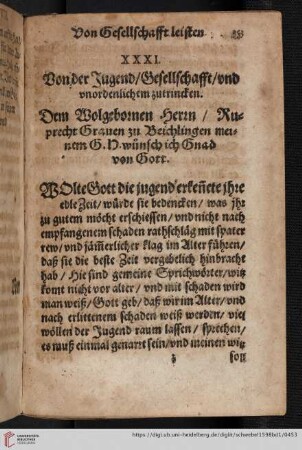 Von Gesellschafft leisten
XXXI.
Von der Jugend/Gesellschafft/vnd
vnordenlichem zutrincken.
Dem Wolgebornen Herrn / Ru-
precht Grauen zu Beichlingen mei-
nem G. H. wünsch ich Gnad
von Gott.
WOlte Gott die jugend erkeñete jhre
edle Zeit/ würde sie bedencken/ was jhr
zu gutem möcht erschiessen/ vnd nicht nach
empfangenem schaden rathschläg mit später
rew/ vnd jäm̃erlicher klag im Alter führen/
daß sie die beste Zeit vergebelich hinbracht
hab/ Hie sind gemeine Sprichwörter/ witz
komt nicht vor alter/ vnd mit schaden wird
man weiß/ Gott geb/ daß wir im Alter/ vnd
nach erlittenem schaden weiß werden/ viel
wöllen der Jugend raum lassen/ sprechen/
es muß einmal genarrt sein/ vnd meinen witz
soll
https://digi.ub.uni-heidelberg.de/diglit/schwebel1598bd1/0453
UNIVERSITÄTS-
BIBLIOTHEK
HEIDELBERG